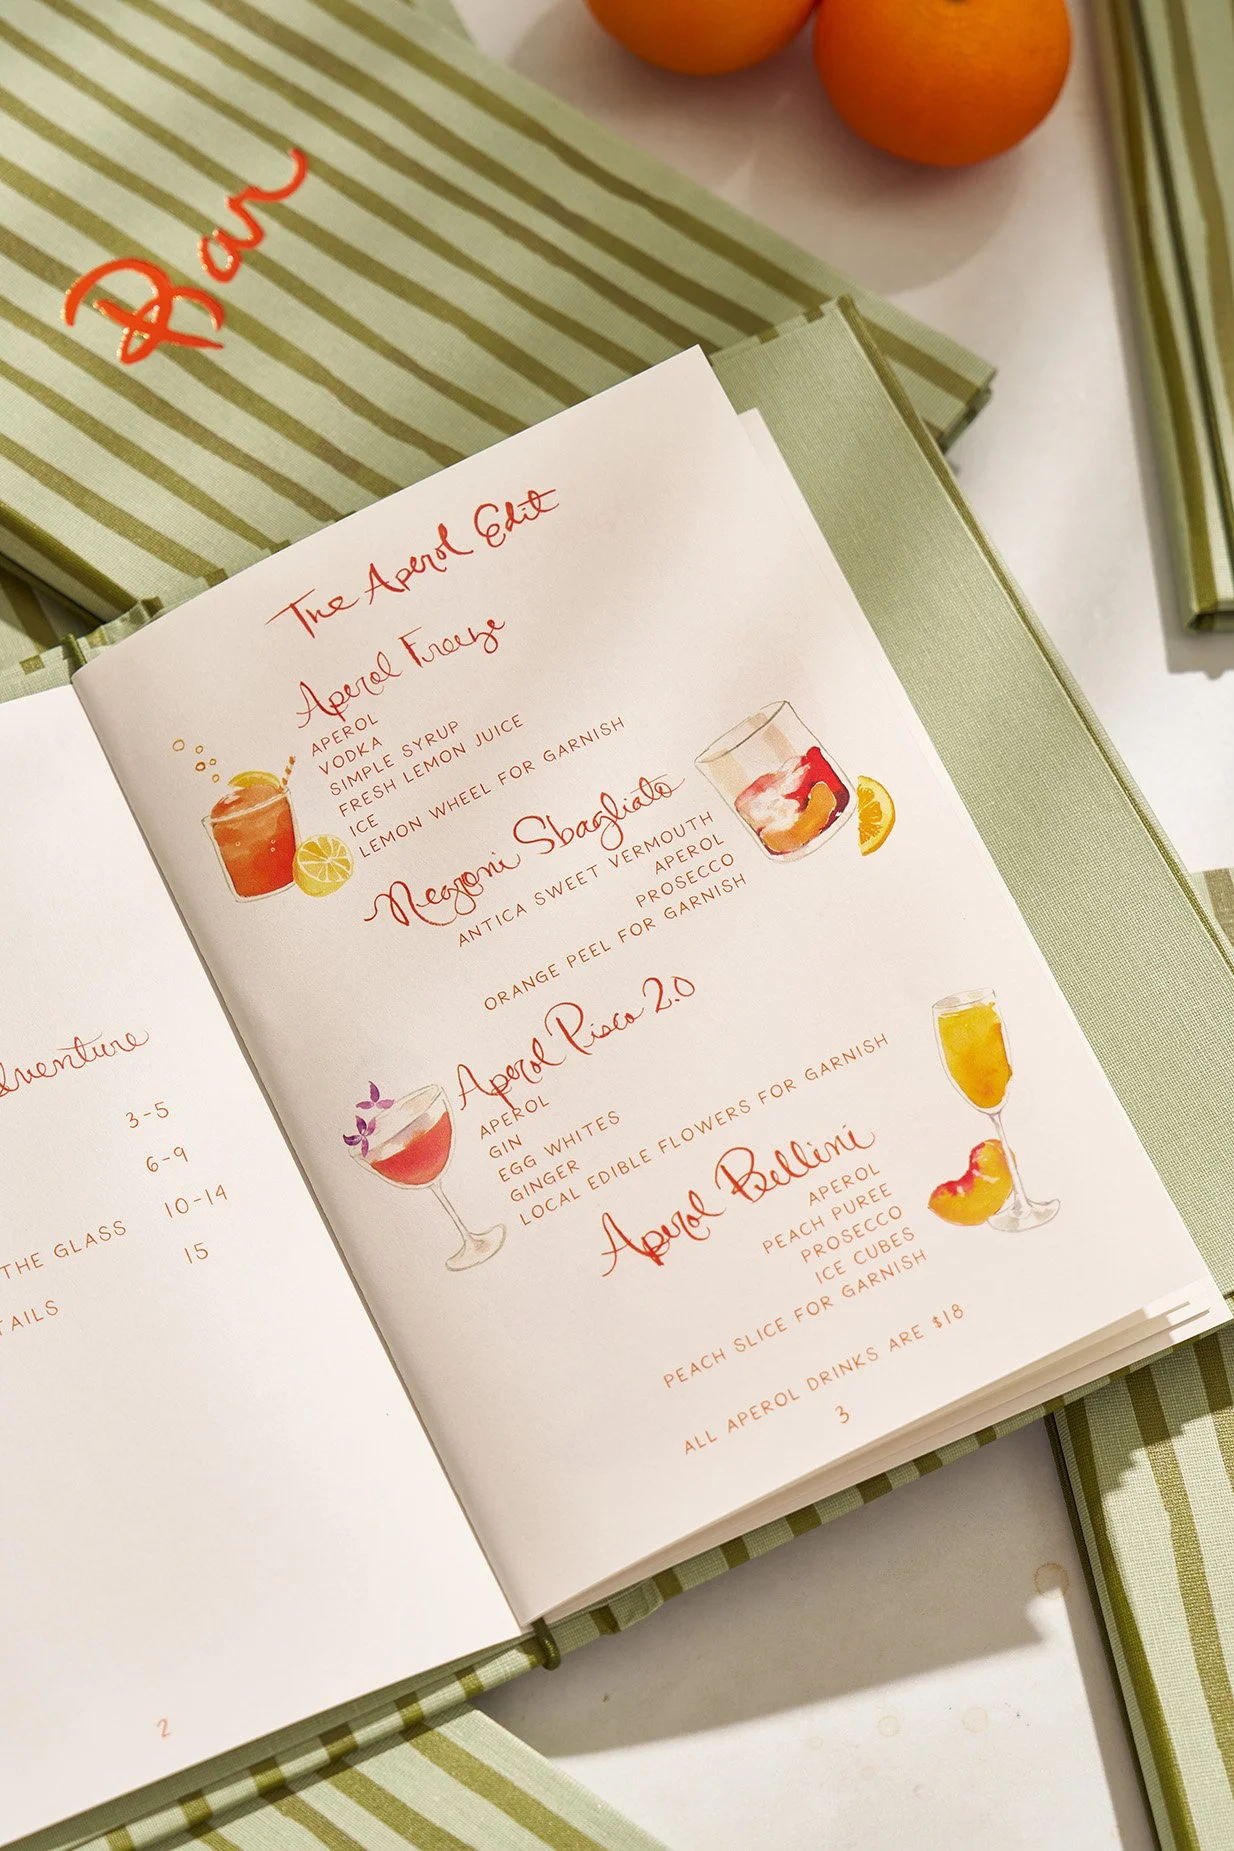 Bar
dventure
3-5
6-9
10-14
THE GLASS
15
TAILS
2
The Aperol Edit
Aperol Freeze
APEROL
VODKA
SIMPLE SYRUP
FRESH LEMON JUICE
ICE
LEMON WHEEL FOR GARNISH
Negroni Sbagliato
ANTICA SWEET VERMOUTH
APEROL
PROSECCO
ORANGE PEEL FOR GARNISH
Aperol Pisco 2.0
APEROL
GIN
EGG WHITES
GINGER
LOCAL EDIBLE FLOWERS FOR GARNISH
Aperol Bellini
APEROL
PEACH PUREE
PROSECCO
ICE CUBES
PEACH SLICE FOR GARNISH
ALL APEROL DRINKS ARE $18
3